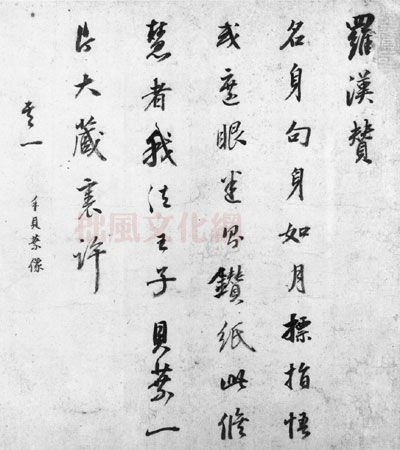 羅漢贊
名身句身如月標指悟
或遮眼迷鑽紙此脩
慧者我法王子貝葉一
片大藏裏許
一
手貝葉像
風文化網